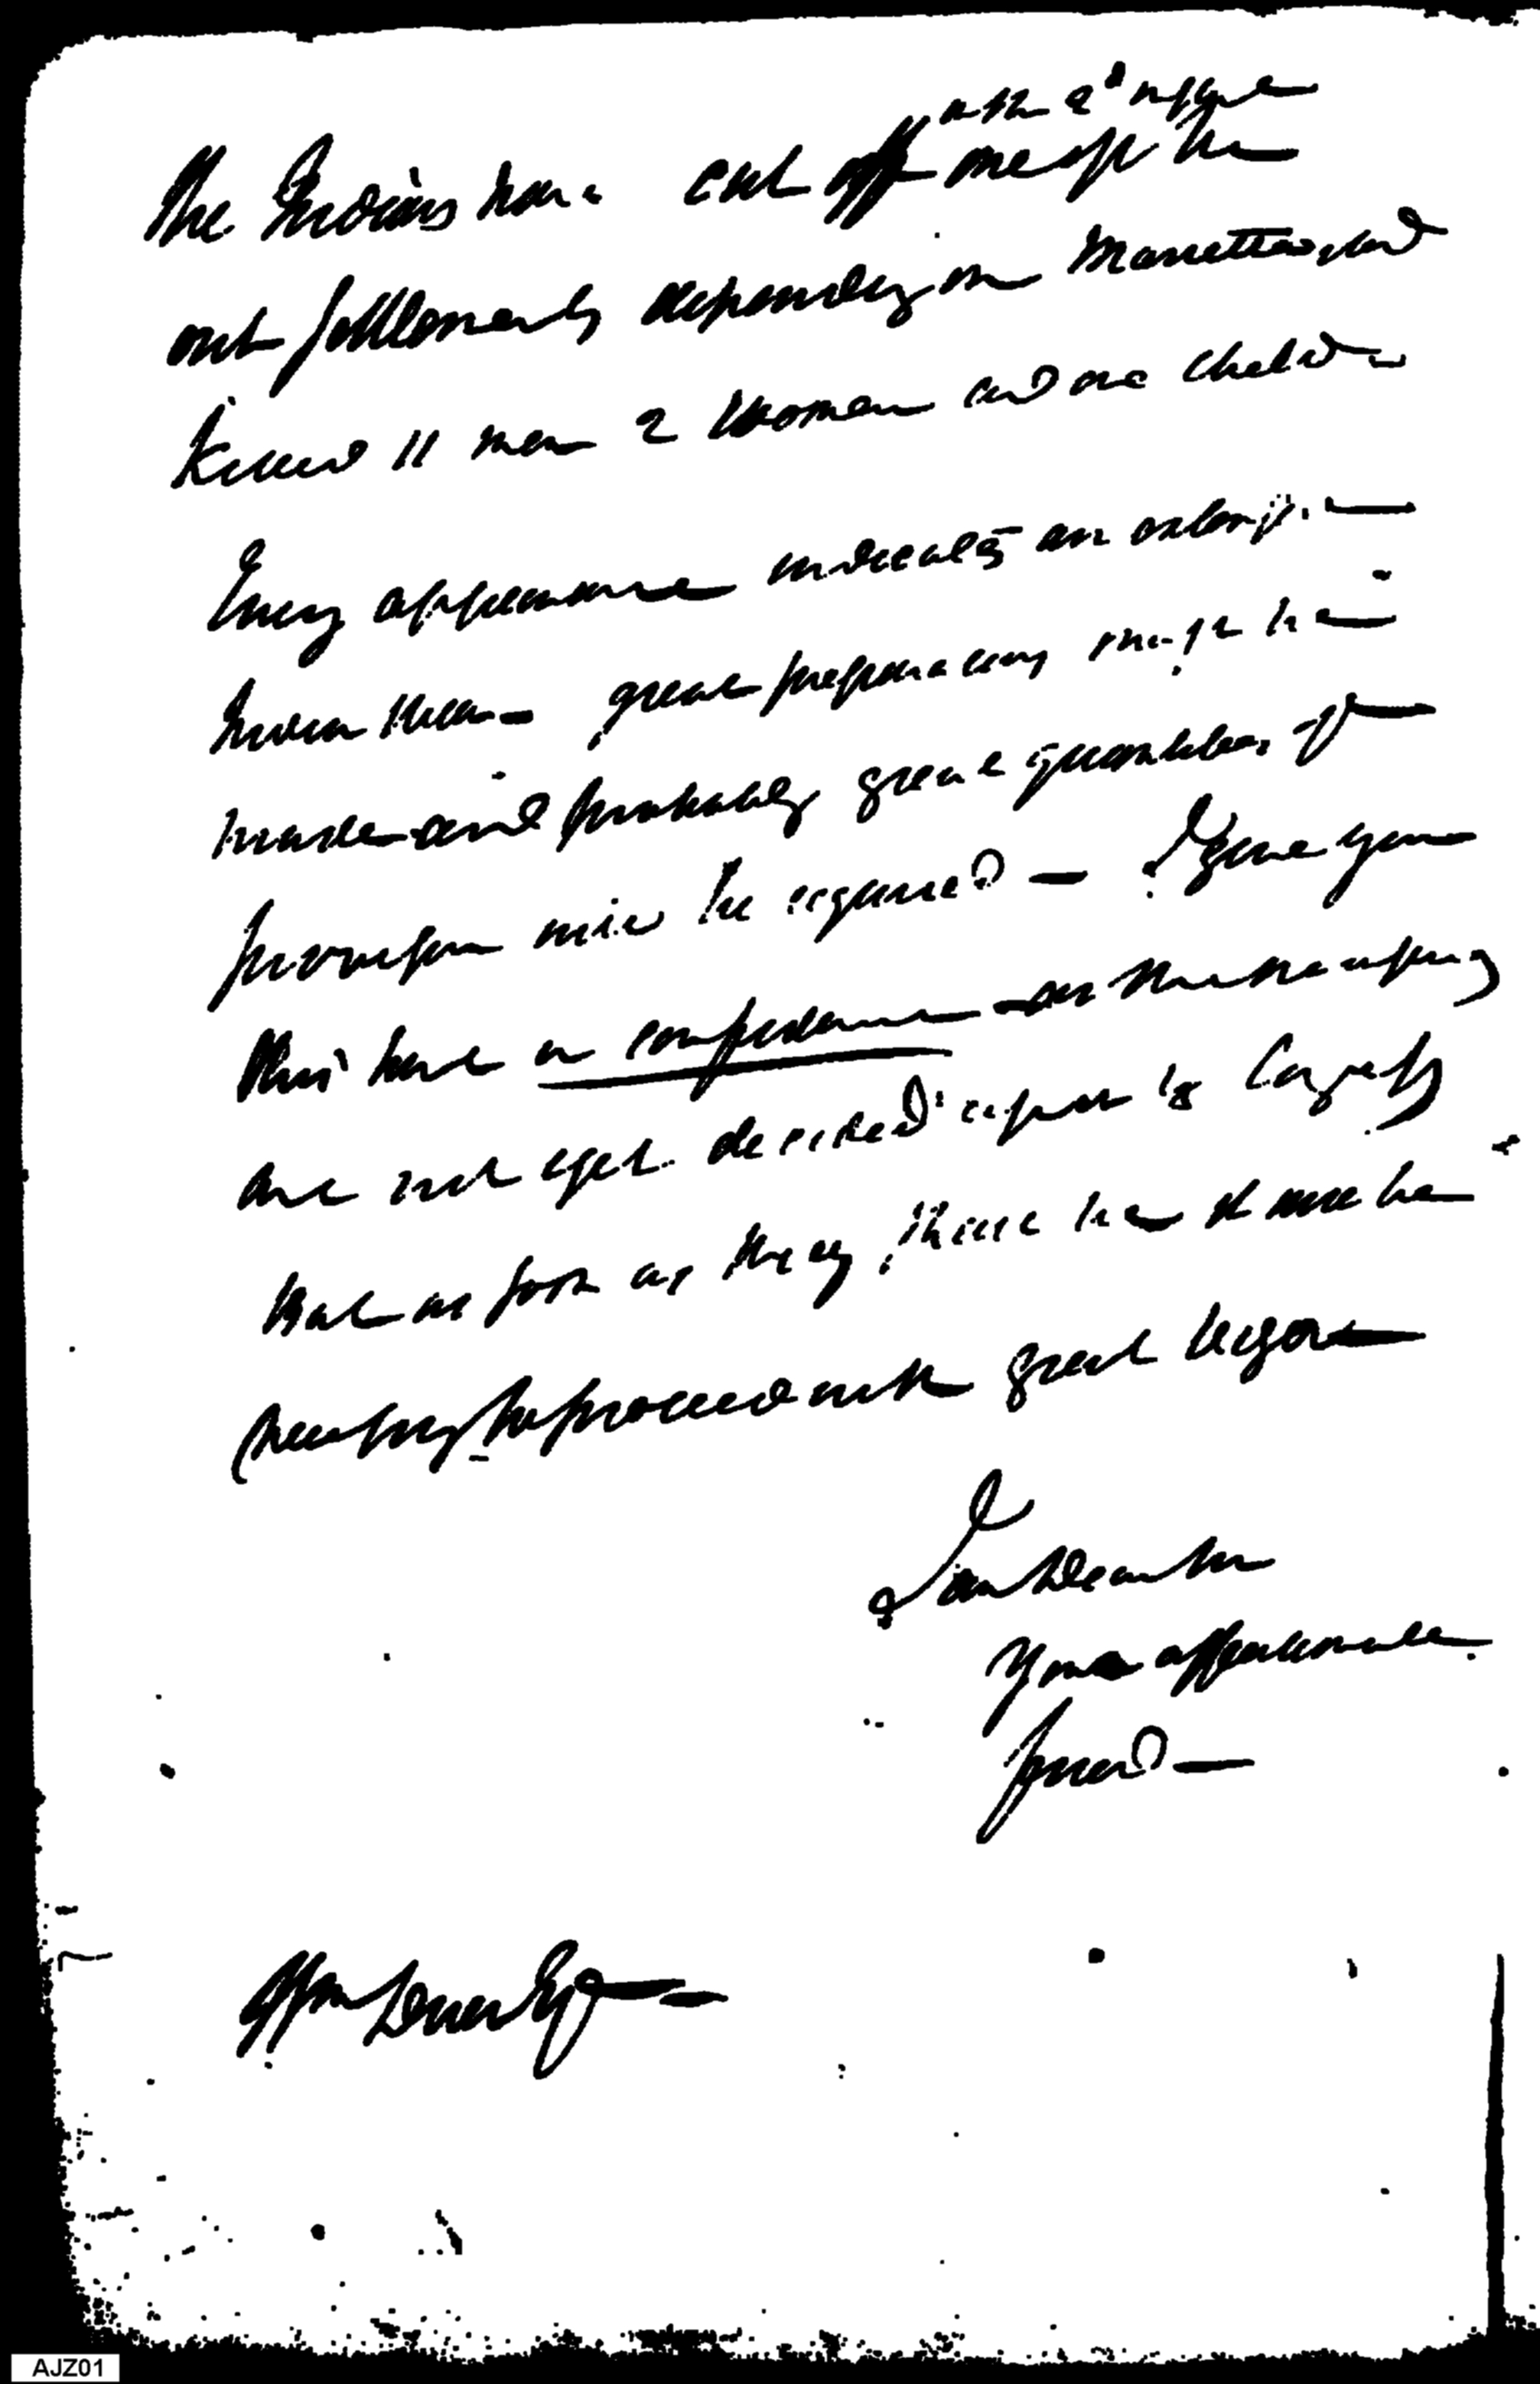 The Indians have cut off one of the
out settlements depending on Marietta and
killed 11 men 2 women and one child
Every appearance indicates an extensive
Indian War — great preparations must be
made and probably great quantities of
provision will be required — I give you
this hint in confidence as the measures
are not yet decided upon by Congress
but as soon as they shall be it will be
necessary to proceed with great vigor
I am Dear Sir
Your affectionate
friend —
Wm Duer Esqr —
AJZ01